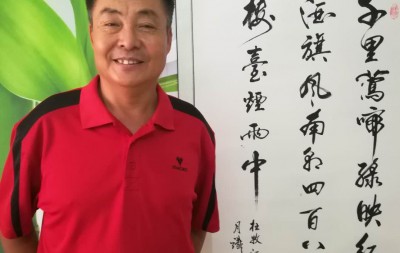 千里鶯啼綠映紅
酒旗風南朝四百八
樓臺煙雨中
杜牧
月